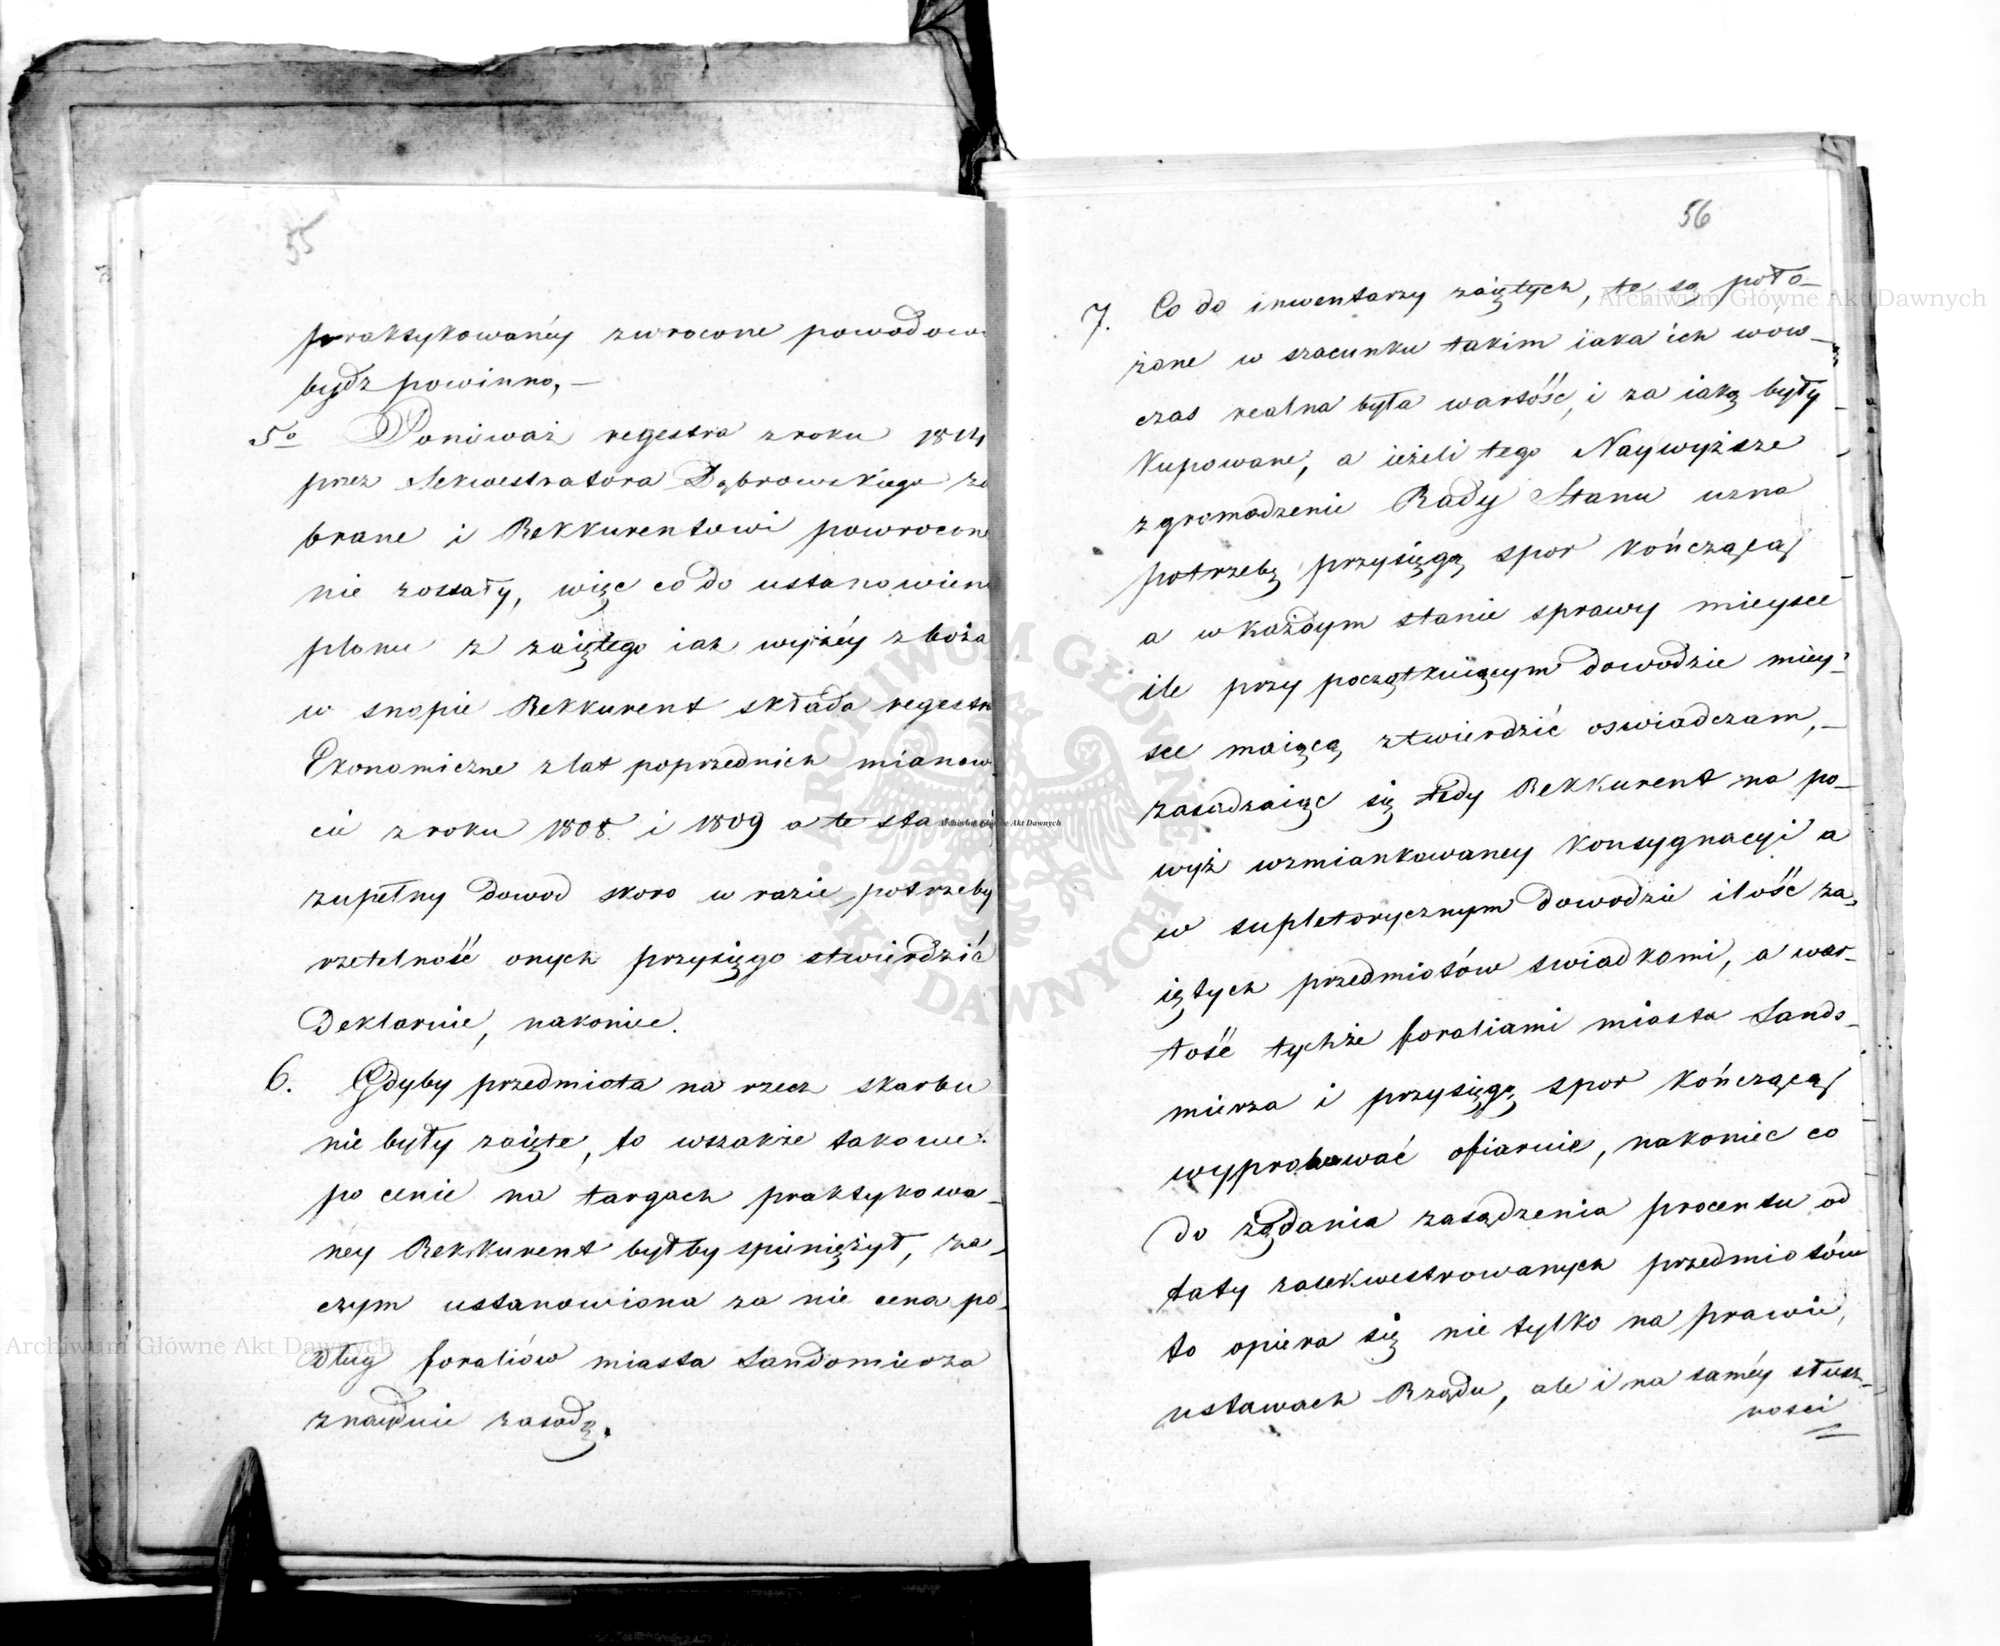 55
praktykowanéy zwrocone powodow
bydz powinno, —
5o Poniważ regestra z roku 1814
przez Sekwestratora Dąbrowskiego za
brane i Rekkurentowi powrocone
nie zostały, więc co do ustanowien
plonu z zaiętego iak wyżéy zboża
w snopie Rekkurent składa regestr
Ekonomiczne z lat poprzednich mianow
cie z roku 1808 i 1809 a te sta
zupełny dowod skoro w razie potrzeby
rzetelność onych przysięgo stwierdzić
Deklaruie, nakoniec.
6. Gdyby przedmiota na rzecz skarbu
nie były zaięte, to wszakże takowe
po cenie na targach praktykowa-
néy Rekkurent byłby spieniężył, za-
czym ustanowiona za nie cena po-
dług foraliów miasta Sandomierza
znayduie zasadę.
56
7. Co do inwentarzy zaiętych, te są poło-
żone w szacunku takim iaka ich wów-
czas realna była wartość, i za iaką były
kupowane, a ieżeli tego Naywyższe
zgromadzenie Rady Stanu uzna
potrzebę przysięgą spor kończącą
a w każdym stanie sprawy mieysce
ile przy początkuiącym dowodzie miey-
sce maiącą ztwierdzić oswiadczam, —
zasadzaiąc się tedy Rekkurent na po-
wyż wzmiankowaney konsygnacyi a
w supletorycznym dowodzie ilość za-
iętych przedmiotów swiadkami, a war-
tość tychże foraliami miasta Sando-
mierza i przysięgą spor kończącą
wyprobować ofiaruie, nakoniec co
do żądania zasądzenia procentu od
taty zasekwestrowanych przedmiotów
to opiera się nie tylko na prawie,
ustawach Rządu, ale i na saméy słusz-
nosci
Archiwum Główne Akt Dawnych
Archiwum Główne Akt Dawnych
Archiwum Główne Akt Dawnych
ARCHIWUM GŁÓWNE AKT DAWNYCH